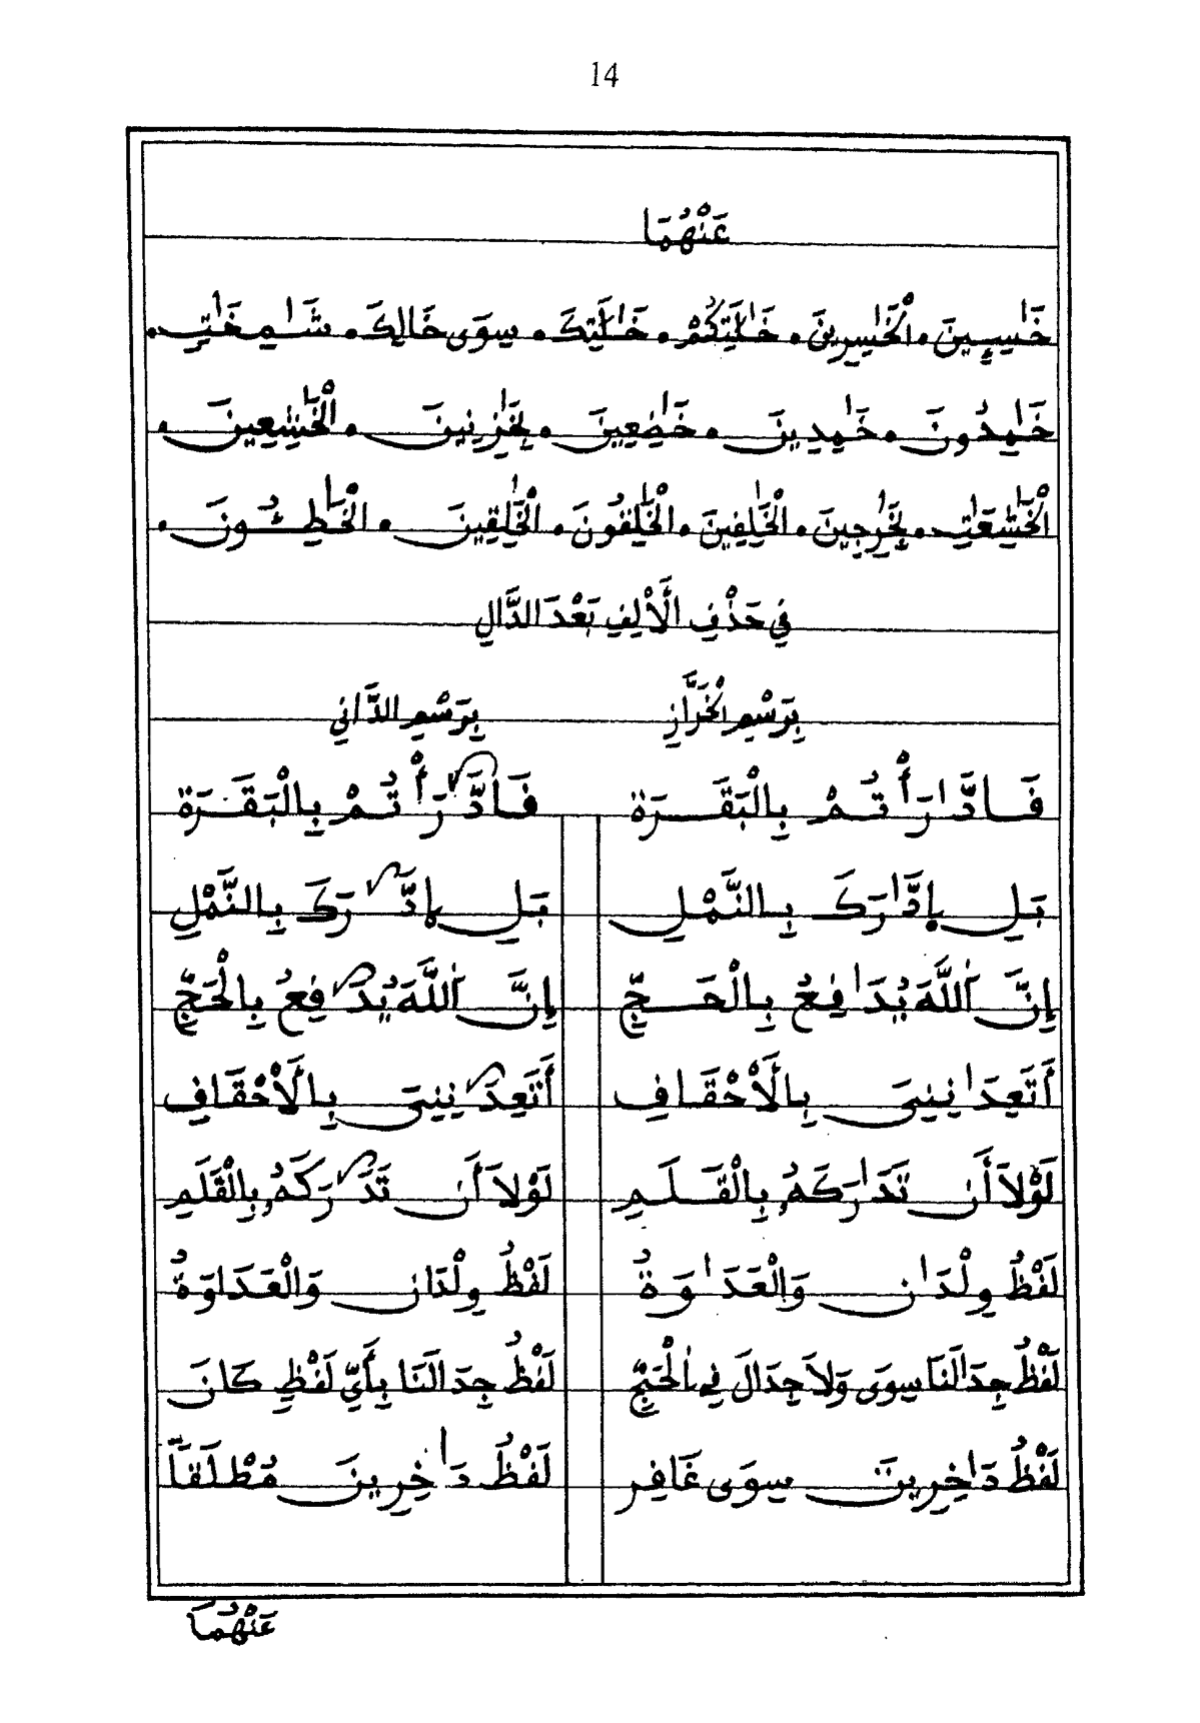 14
عَنْهُمَا
خَٰسِـِٕينَ • الْخَٰسِرِينَ • خَٰلَٰتِكُمْ • خَٰلَٰتِكَ • سِوَى خَالِكَ • شَٰمِخَٰتٍ •
خَٰمِدُونَ • خَٰمِدِينَ • خَٰضِعِينَ • بِخَٰزِنِينَ • الْخَٰشِعِينَ •
الْخَٰشِعَٰتِ • بِخَٰرِجِينَ • الْخَٰلِفِينَ • الْخَٰلِقُونَ • الْخَٰلِقِينَ • الْخَٰطِـُٔونَ •
فِي حَذْفِ الَْالِفِ بَعْدَ الدَّالِ
بِرَسْمِ الْخَرَّازِ بِرَسْمِ الدَّانِي
فَادَّٰرَأْتُمْ بِالْبَقَرَة فَادَّٰرَأْتُمْ بِالْبَقَرَة
بَلِ إِدَّٰرَكَ بِالنَّمْلِ بَلِ إِدَّٰرَكَ بِالنَّمْلِ
إِنَّ اَللَّهَ يُدَٰفِعُ بِالْحَجِّ إِنَّ اَللَّهَ يُدَٰفِعُ بِالْحَجِّ
أَتَعِدَٰنِنِيَ بِالَْأحْقَافِ أَتَعِدَٰنِنِيَ بِالَْأحْقَافِ
لَوْلاَ أَن تَدَٰرَكَهُ بِالْقَلَمِ لَوْلاَ أَن تَدَٰرَكَهُ بِالْقَلَمِ
لَفْظُ وِلْدَٰن وَالْعَدَٰوَةُ لَفْظُ وِلْدَان وَالْعَدَاوَةُ
لَفْظُ جِدَٰلَنَا سِوَى وَلاَ جِدَالَ فِي اِلْحَجِّ لَفْظُ جِدَالَنَا بِأَيِّ لَفْظٍ كَانَ
لَفْظُ دَٰخِرِينَ سِوَى غَافِرٍ لَفْظُ دَٰخِرِينَ مُطْلَقاً
عَنْهُمَا